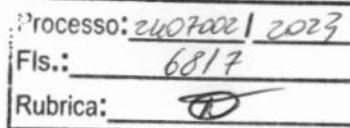 Processo: 2407002/2023
Fls.: 6817
Rubrica: